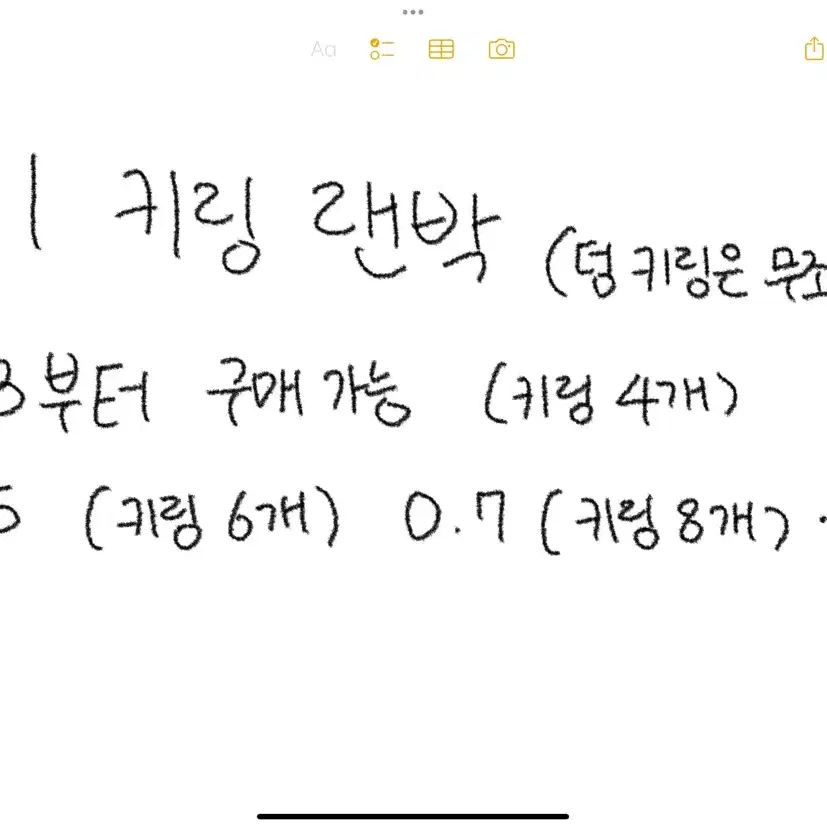 Aa
1 키링 랜박 (덩 키링은 무조
3부터 구매 가능 (키링 4개)
5 (키링 6개) 0.7 (키링 8개) .